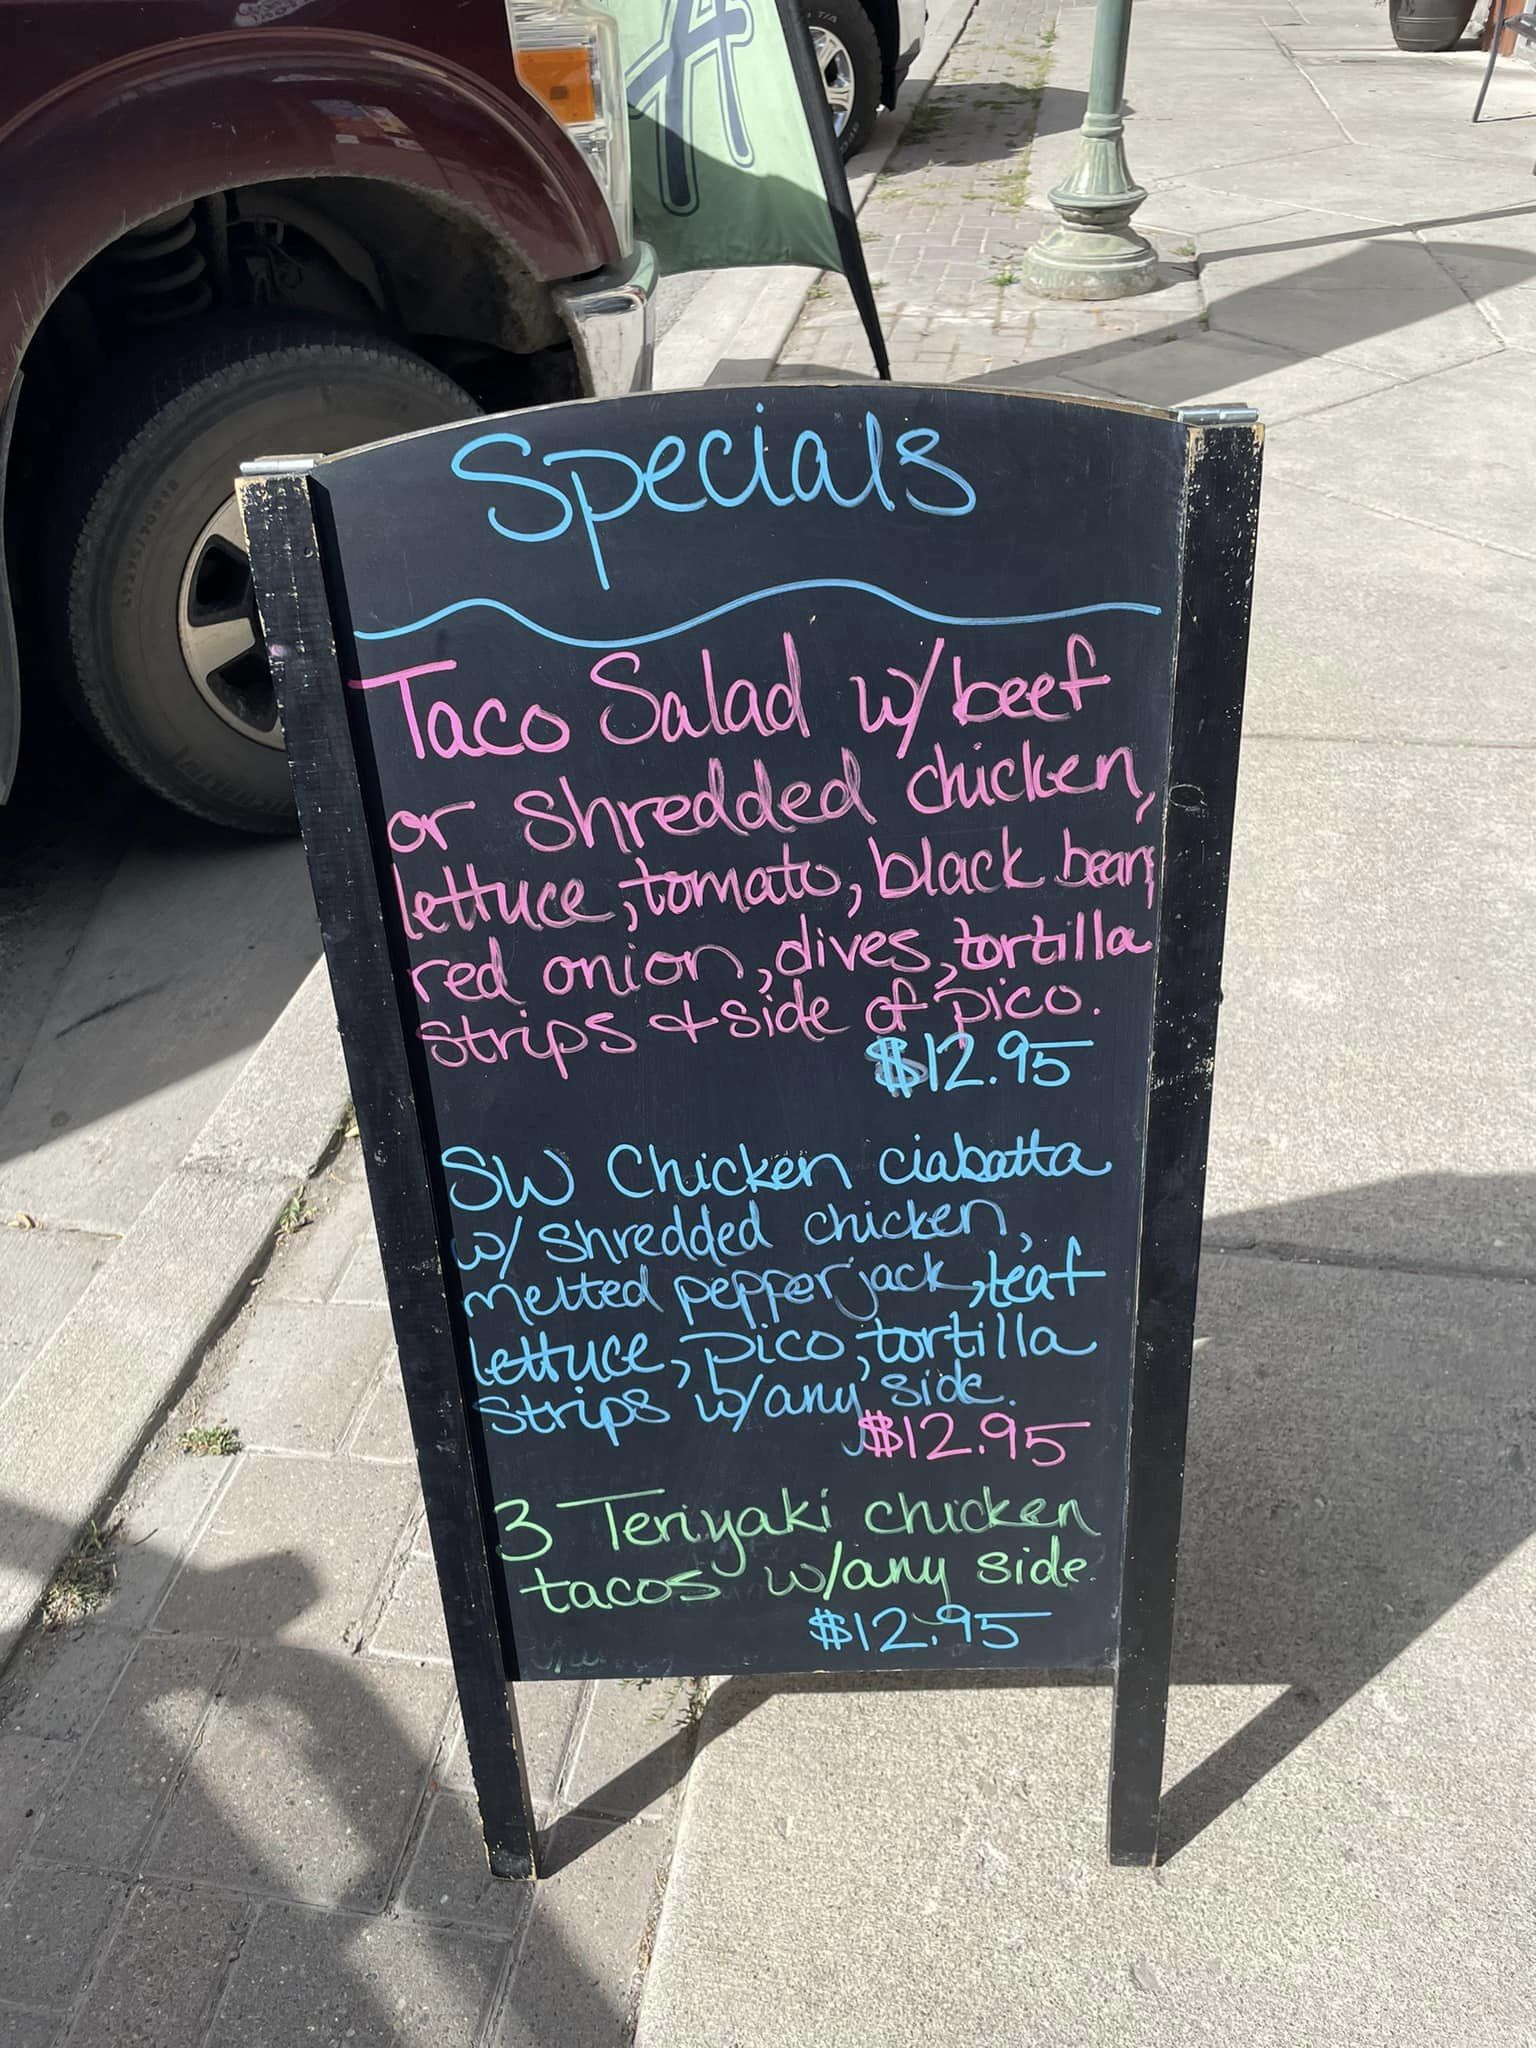 A
Specials
Taco Salad w/beef
or shredded chicken,
lettuce, tomato, black beans,
red onion, olives, tortilla
strips & side of pico.
$12.95
SW Chicken ciabatta
w/ shredded chicken,
melted pepperjack, leaf
lettuce, pico, tortilla
strips w/any side.
$12.95
3 Teriyaki chicken
tacos w/any side.
$12.95